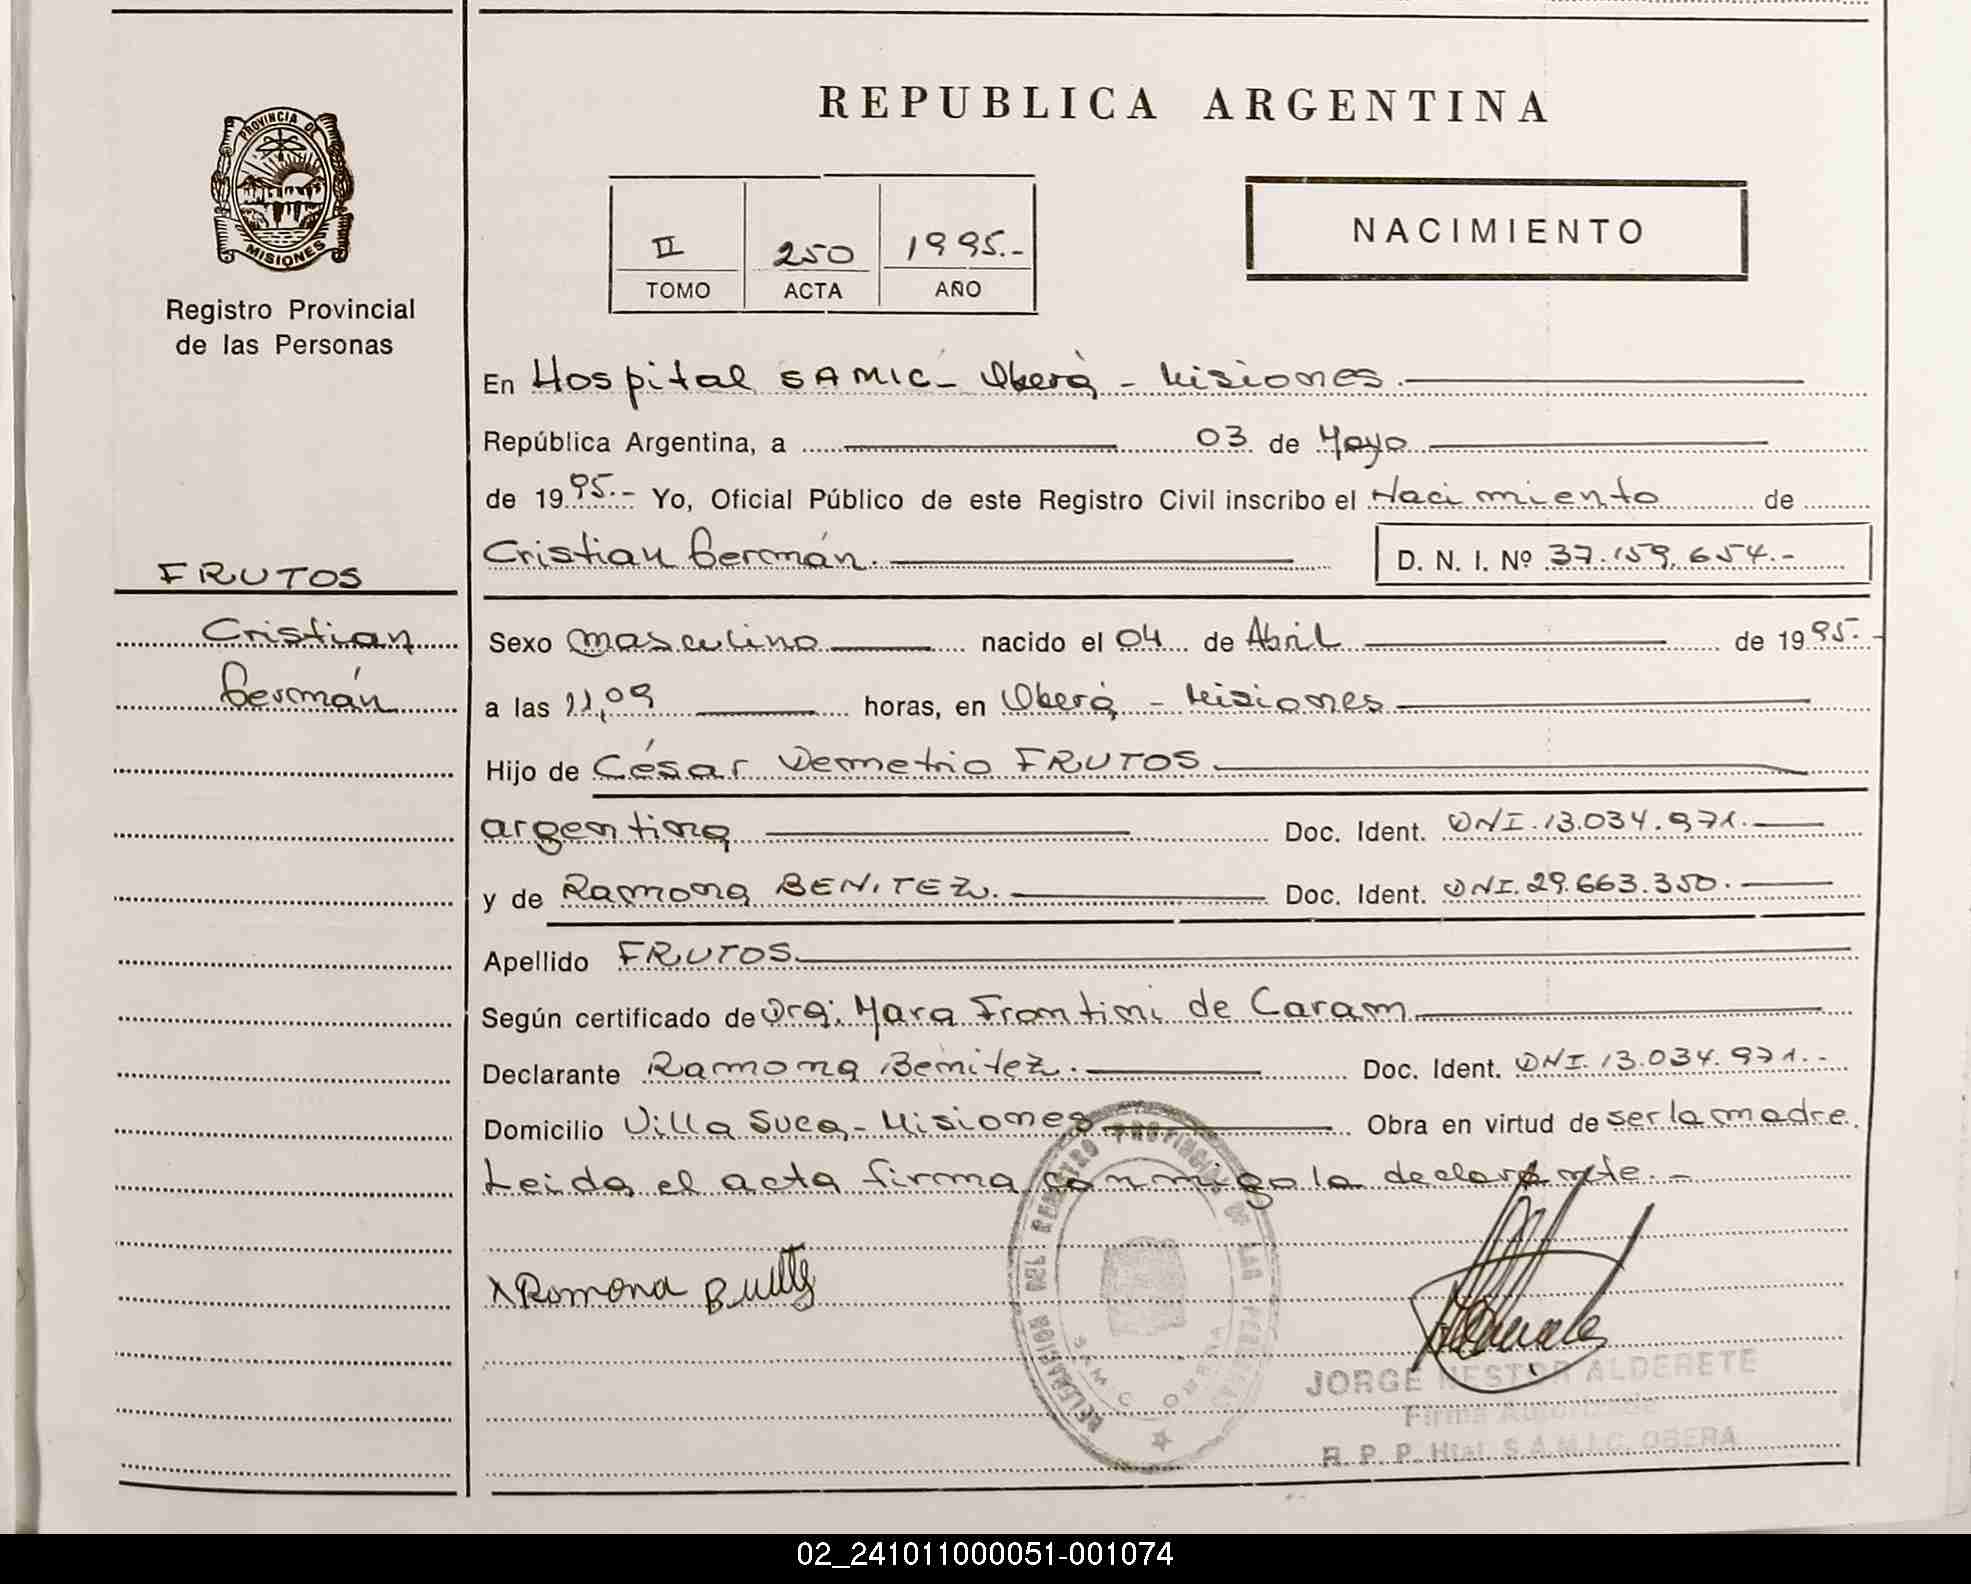 REPUBLICA ARGENTINA
PROVINCIA DE
MISIONES
Registro Provincial
de las Personas
II 250 1995.-
TOMO ACTA AÑO
NACIMIENTO
En Hospital SAMIC - Oberá - Misiones.
República Argentina, a 03 de Mayo
de 1995.- Yo, Oficial Público de este Registro Civil inscribo el Nacimiento de
Cristian Germán. D. N. I. Nº 37.159.654.-
FRUTOS
Cristian
Germán
Sexo masculino nacido el 04 de Abril de 1995.-
a las 11,09 horas, en Oberá - Misiones
Hijo de César Demetrio FRUTOS.
argentina Doc. Ident. DNI. 13.034.971.
y de Ramona BENITEZ. Doc. Ident. DNI. 29.663.350.
Apellido FRUTOS.
Según certificado de Dra. Mara Frontini de Caram
Declarante Ramona Benitez. Doc. Ident. DNI. 13.034.971.-
Domicilio Villa Suea - Misiones Obra en virtud de ser la madre.
Leida el acta firma conmigo la declarante.-
x Romona
DEL REGISTRO PROVINCIAL DE LAS PERSONAS
JORGE NESTOR ALDERETE
Firma Autorizada
R. P. P. Htal. S.A.M.I.C. OBERA
02_241011000051-001074